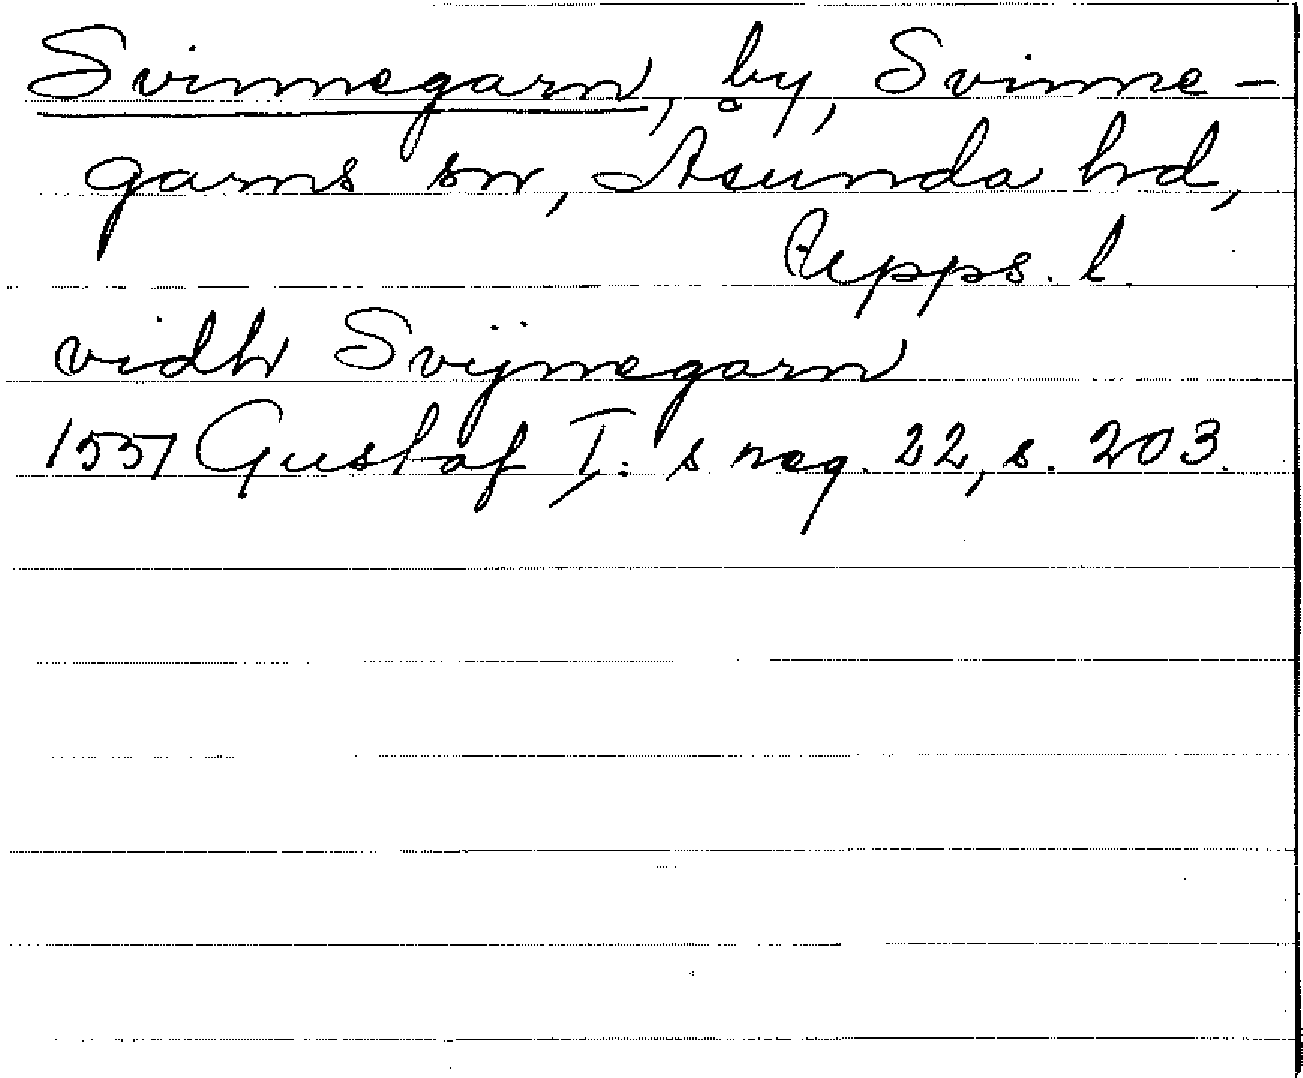 Svinnegarn, by, Svinne-
garns sn, Åsunda hd,
Upps. l.
vidh Svijnegarn
1551 Gustaf I:s reg. 22, s. 203.